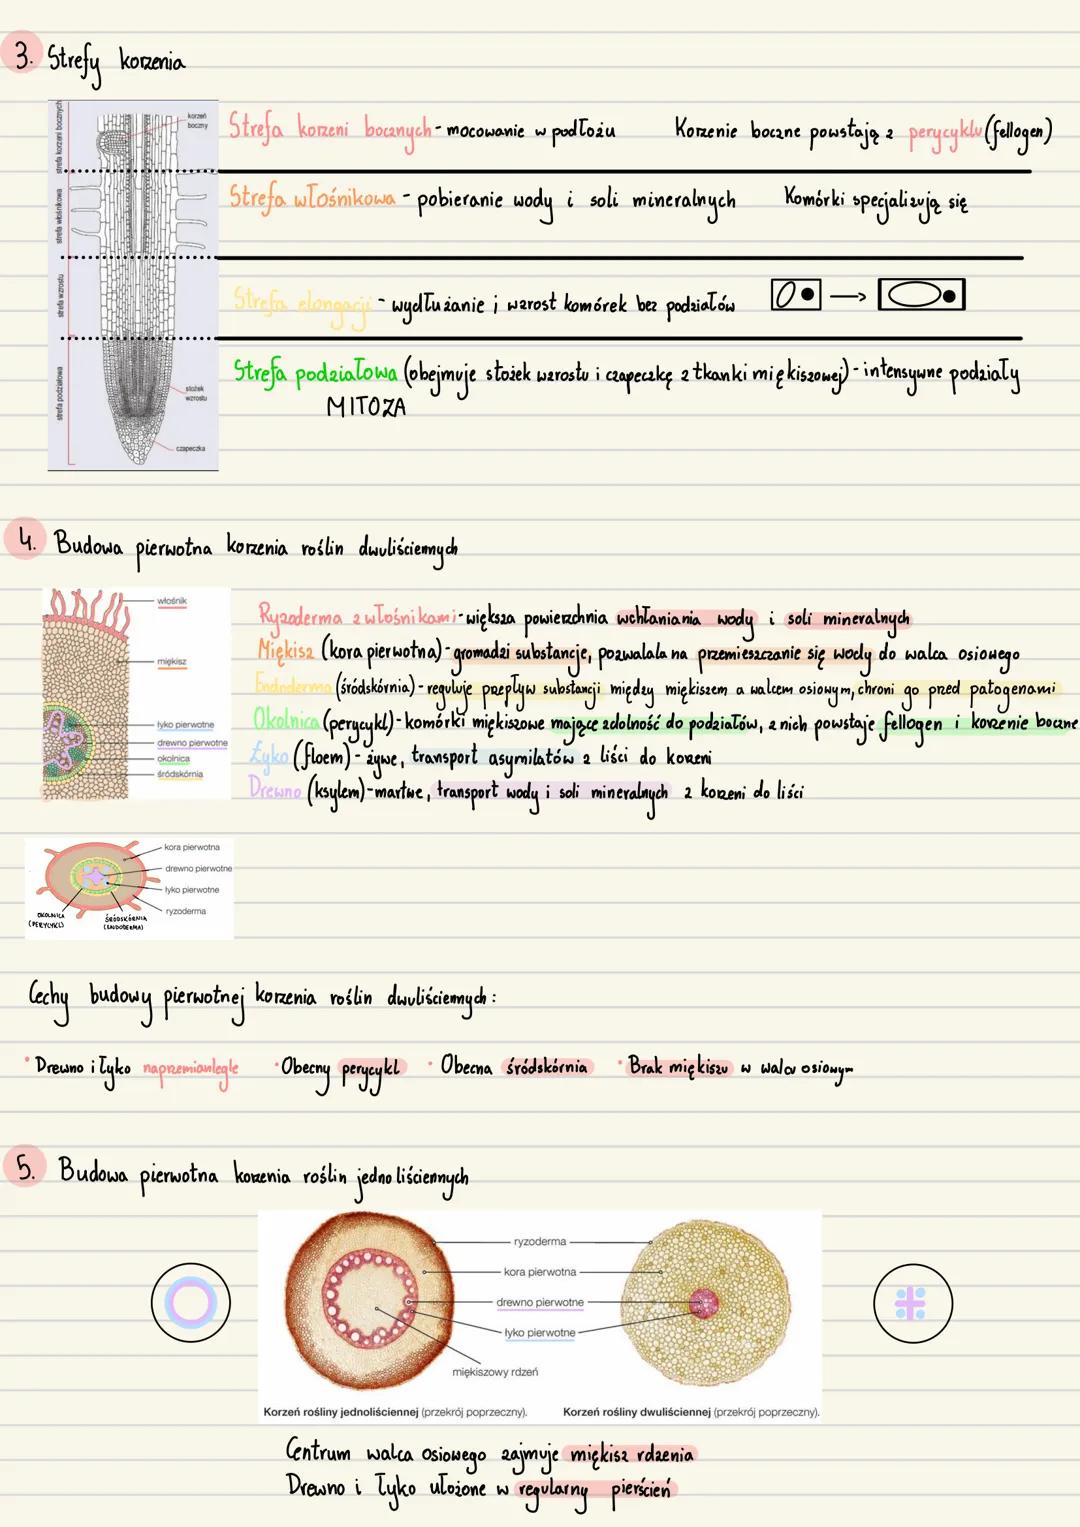 3. Strefy korzenia
strefa korzeni bocznych
strefa włośnikowa
strefa wzrostu
strefa podziałowa
korzeń
boczny
stożek
wzrostu
czapeczka
Strefa korzeni bocznych - mocowanie w podłożu Korzenie boczne powstają z perycyklu (fellogen)
Strefa włośnikowa - pobieranie wody i soli mineralnych Komórki specjalizują się
Strefa elongacji - wydłużanie i wzrost komórek bez podziałów
Strefa podziałowa (obejmuje stożek wzrostu i czapeczkę z tkanki miękiszowej) - intensywne podziały
MITOZA
4. Budowa pierwotna korzenia roślin dwuliściennych
włośnik
miękisz
łyko pierwotne
drewno pierwotne
okolnica
śródskórnia
Ryzoderma z włośnikami - większa powierzchnia wchłaniania wody i soli mineralnych
Miękisz (kora pierwotna) - gromadzi substancje, pozwalala na przemieszczanie się wody do walca osiowego
Endoderma (śródskórnia) - reguluje przepływ substancji między miękiszem a walcem osiowym, chroni go przed patogenami
Okolnica (perycykl) - komórki miękiszowe mające zdolność do podziałów, z nich powstaje fellogen i korzenie boczne
Łyko (floem) - żywe, transport asymilatów z liści do korzeni
Drewno (ksylem) - martwe, transport wody i soli mineralnych z korzeni do liści
kora pierwotna
drewno pierwotne
łyko pierwotne
ryzoderma
OKOLNICA
(PERYCYKL)
ŚRÓDSKÓRNIA
(ENDODERMA)
Cechy budowy pierwotnej korzenia roślin dwuliściennych:
• Drewno i łyko naprzemianległe • Obecny perycykl • Obecna śródskórnia • Brak miękiszu w walcu osiowym
5. Budowa pierwotna korzenia roślin jednoliściennych
ryzoderma
kora pierwotna
drewno pierwotne
łyko pierwotne
miękiszowy rdzeń
Korzeń rośliny jednoliściennej (przekrój poprzeczny).
Korzeń rośliny dwuliściennej (przekrój poprzeczny).
Centrum walca osiowego zajmuje miękisz rdzenia
Drewno i łyko ułożone w regularny pierścień